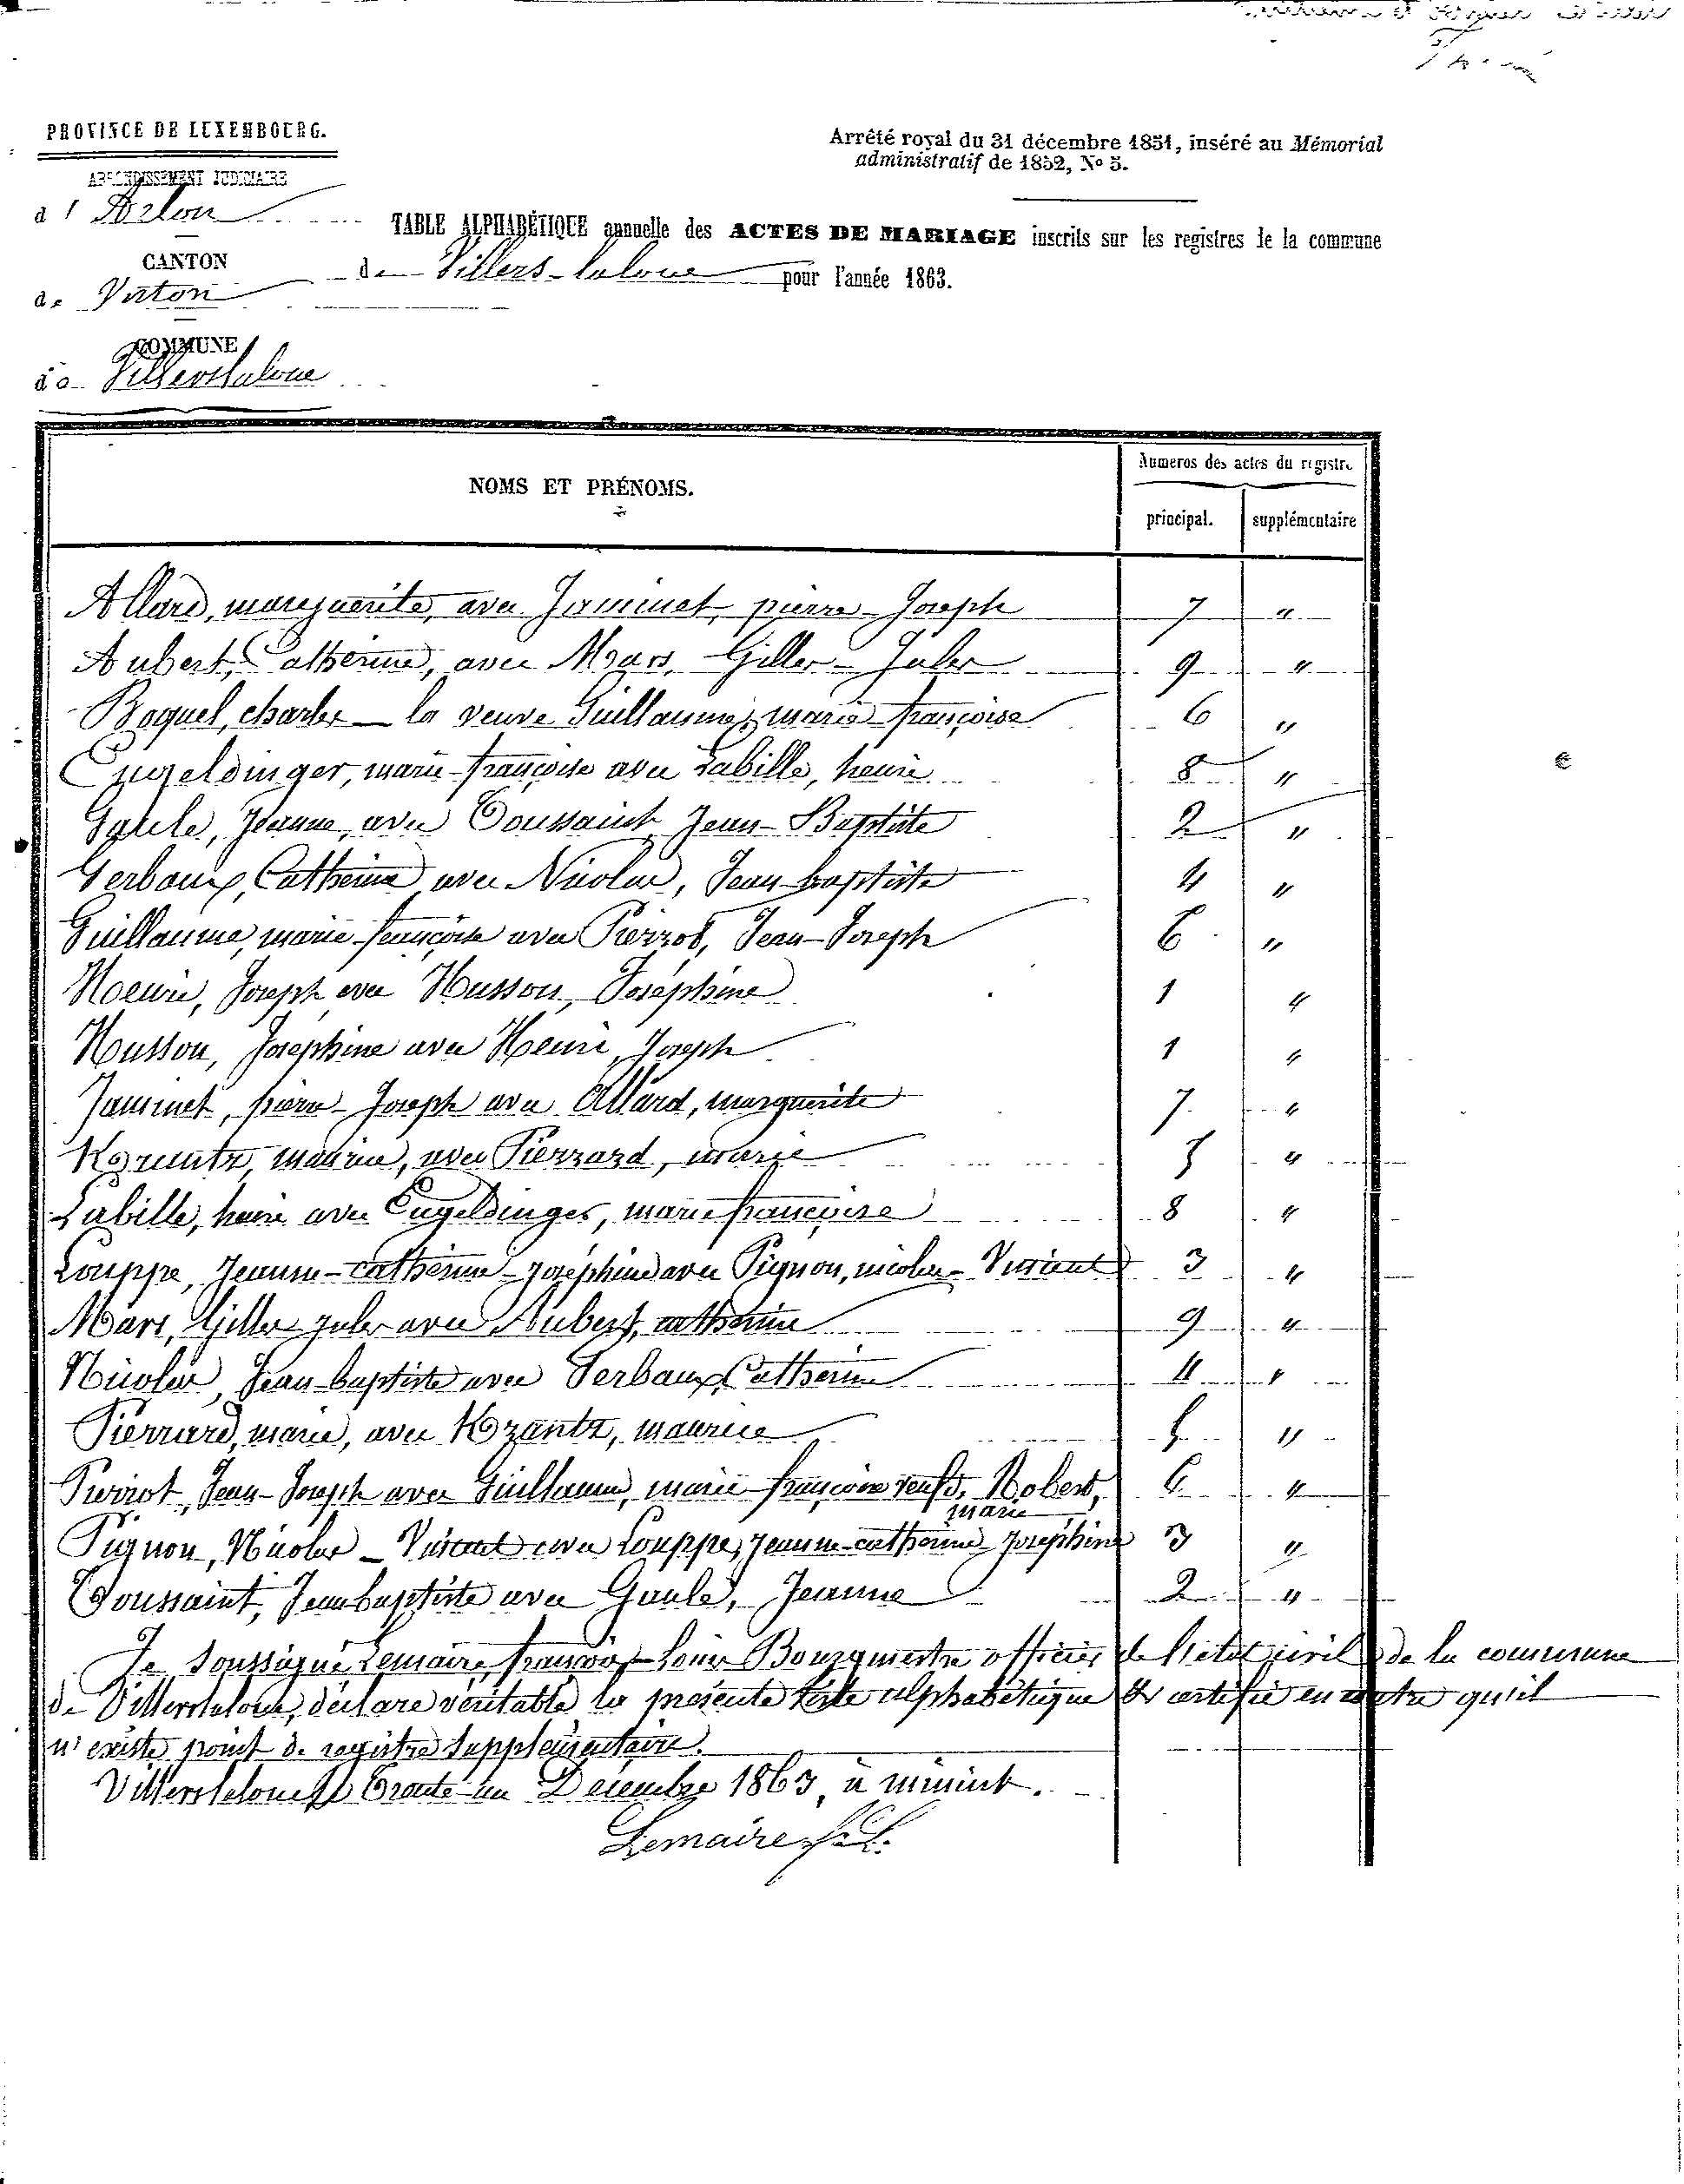 PROVINCE DE LUXEMBOURG.
Arrêté royal du 31 décembre 1851, inséré au Mémorial
administratif de 1852, No 5.
ARRONDISSEMENT JUDICIAIRE
d' Arlon
TABLE ALPHABÉTIQUE annuelle des ACTES DE MARIAGE inscrits sur les registres de la commune
de Villers-laloue pour l'année 1863.
CANTON
de Virton
COMMUNE
de Villerslaloue
NOMS ET PRÉNOMS.
Numéros des actes du registre
principal. supplémentaire
Allard, marguerite, avec Jaminet, pierre-Joseph 7 "
Aubert, Catherine, avec Mars, Gilles-Jules 9 "
Boquel, charles - la veuve Guillaume, marie françoise 6 "
Engeldinger, marie-françoise avec Labille, henri 8 "
Gaule, Jeanne, avec Toussaint Jean-Baptiste 2 "
Gerbaux, Catherine avec Nicolas, Jean-baptiste 4 "
Guillaume, marie-françoise avec Pierrot, Jean-Joseph 6 "
Henri, Joseph avec Husson, Joséphine 1 "
Husson, Joséphine avec Henri, Joseph 1 "
Jaminet, pierre-Joseph avec Allard, marguerite 7 "
Krantz, maurice, avec Pierrard, marie 5 "
Labille, henri avec Engeldinger, marie françoise 8 "
Louppe, Jeanne-catherine-joséphine avec Pignon, nicolas-Vincent 3 "
Mars, Gilles jules avec Aubert, catherine 9 "
Nicolas, Jean-baptiste avec Gerbaux, Catherine 4 "
Pierrard, marie, avec Krantz, maurice 5 "
Pierrot, Jean-Joseph avec Guillaume, marie-françoise veuf de Robert, 6 "
marie
Pignon, Nicolas-Vincent avec Louppe, jeanne-catherine-joséphine 3 "
Toussaint, Jean baptiste avec Gaule, Jeanne 2 "
Je soussigné Lemaire françois-Louis Bourgmestre officier de l'état civil de la commune
de Villerslaloue, déclare véritable la présente table alphabétique & certifie en outre qu'il
n'existe point de registre supplémentaire.
Villerslaloue le trente-un Décembre 1863, à minuit.
Lemaire f.L.